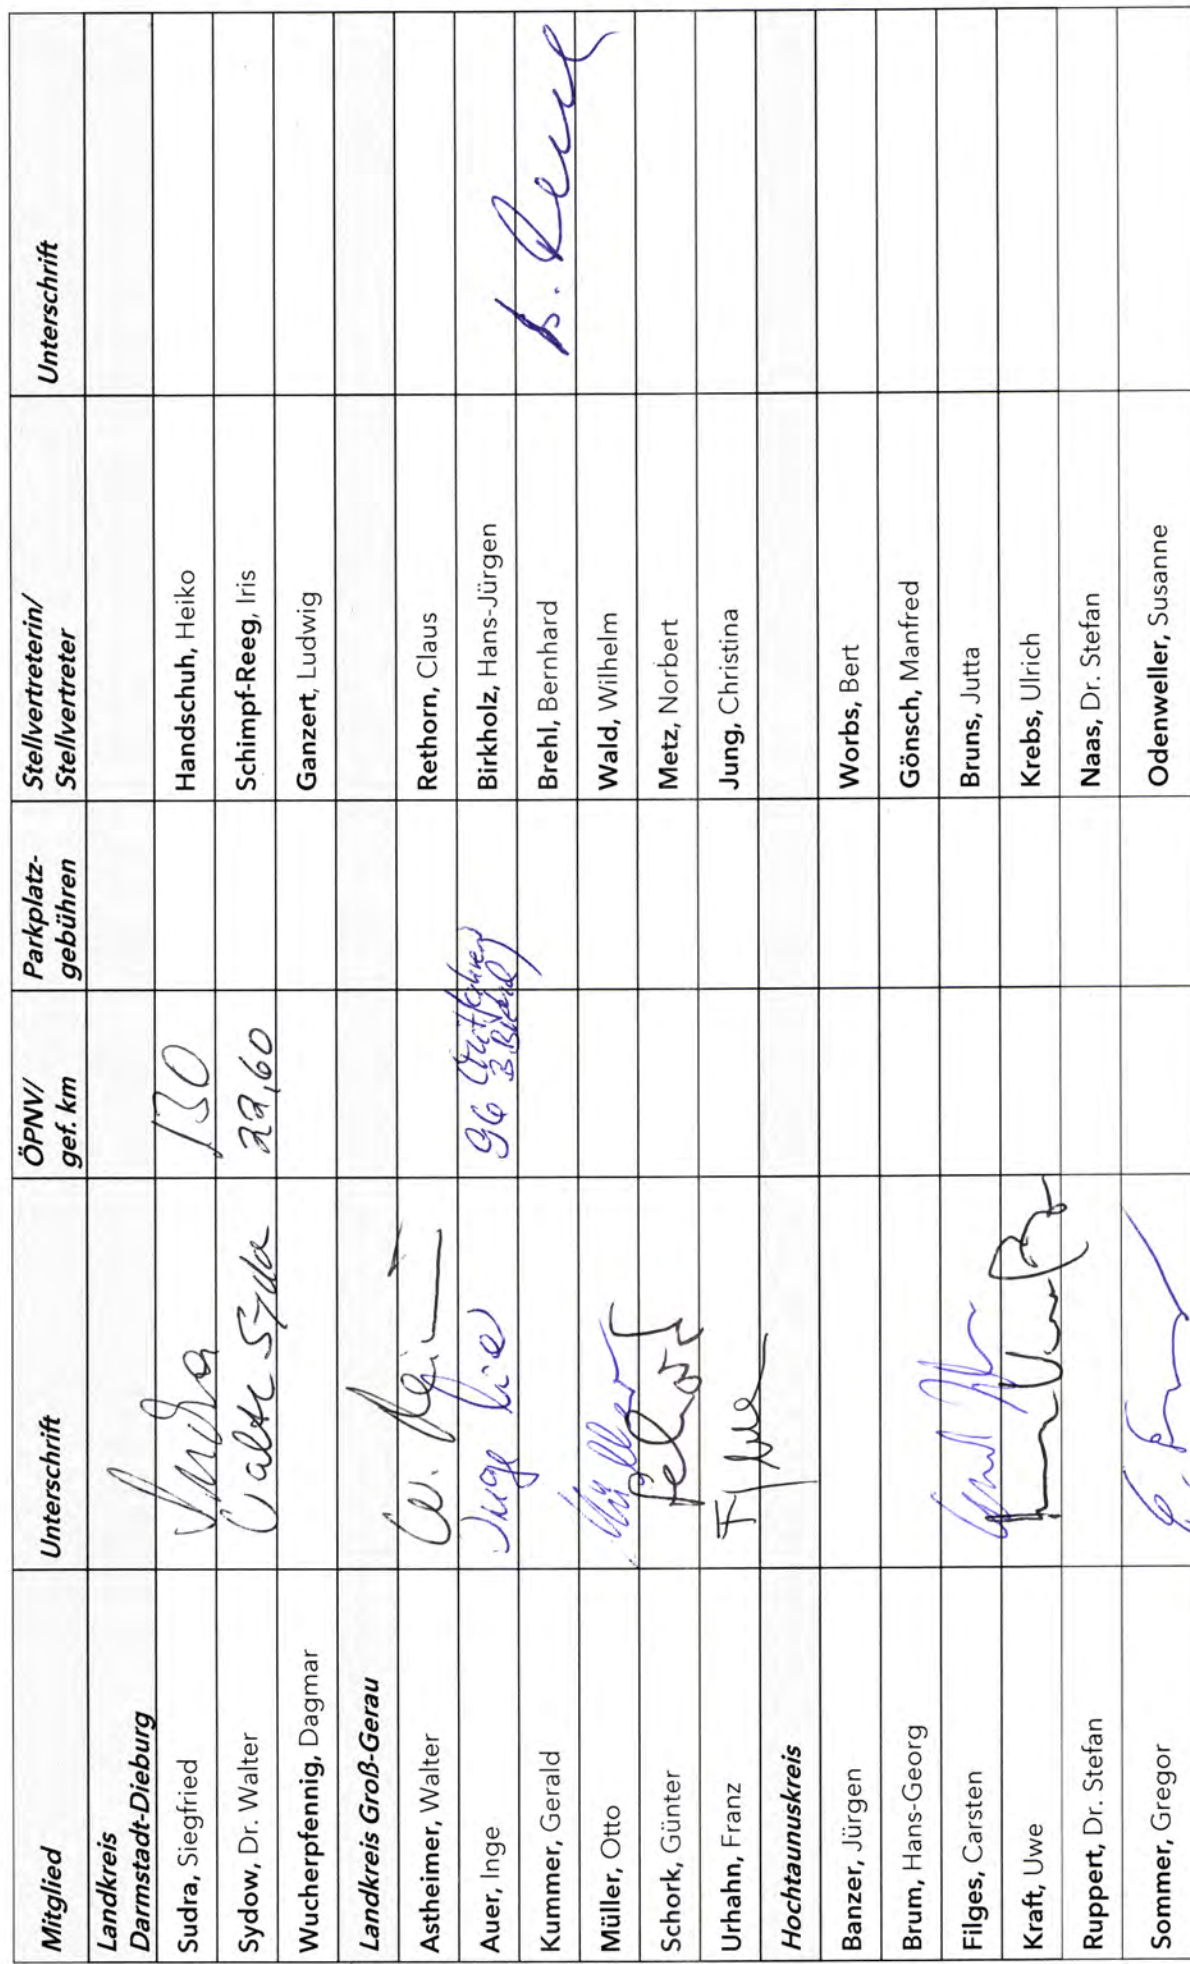 Mitglied Unterschrift ÖPNV/ gef. km Parkplatz- gebühren Stellvertreterin/ Stellvertreter Unterschrift
Landkreis
Darmstadt-Dieburg
Sudra, Siegfried Sudra 130 Handschuh, Heiko
Sydow, Dr. Walter 22,60 Schimpf-Reeg, Iris
Wucherpfennig, Dagmar Ganzert, Ludwig
Landkreis Groß-Gerau
Astheimer, Walter Rethorn, Claus
Auer, Inge Inge 96 Birkholz, Hans-Jürgen
Kummer, Gerald Brehl, Bernhard
Müller, Otto Müller Wald, Wilhelm
Schork, Günter Metz, Norbert
Urhahn, Franz Jung, Christina
Hochtaunuskreis
Banzer, Jürgen Worbs, Bert
Brum, Hans-Georg Gönsch, Manfred
Filges, Carsten Bruns, Jutta
Kraft, Uwe Krebs, Ulrich
Ruppert, Dr. Stefan Naas, Dr. Stefan
Sommer, Gregor Odenweller, Susanne